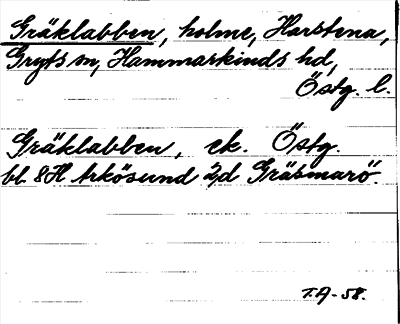 Gräklabben, holme, Harstena,
Gryts sn, Hammarkinds hd,
Östg. l.
Gräklabben, ek. Östg.
bl. 8H Arkösund 2,d Gräsmarö.
T.A-58.